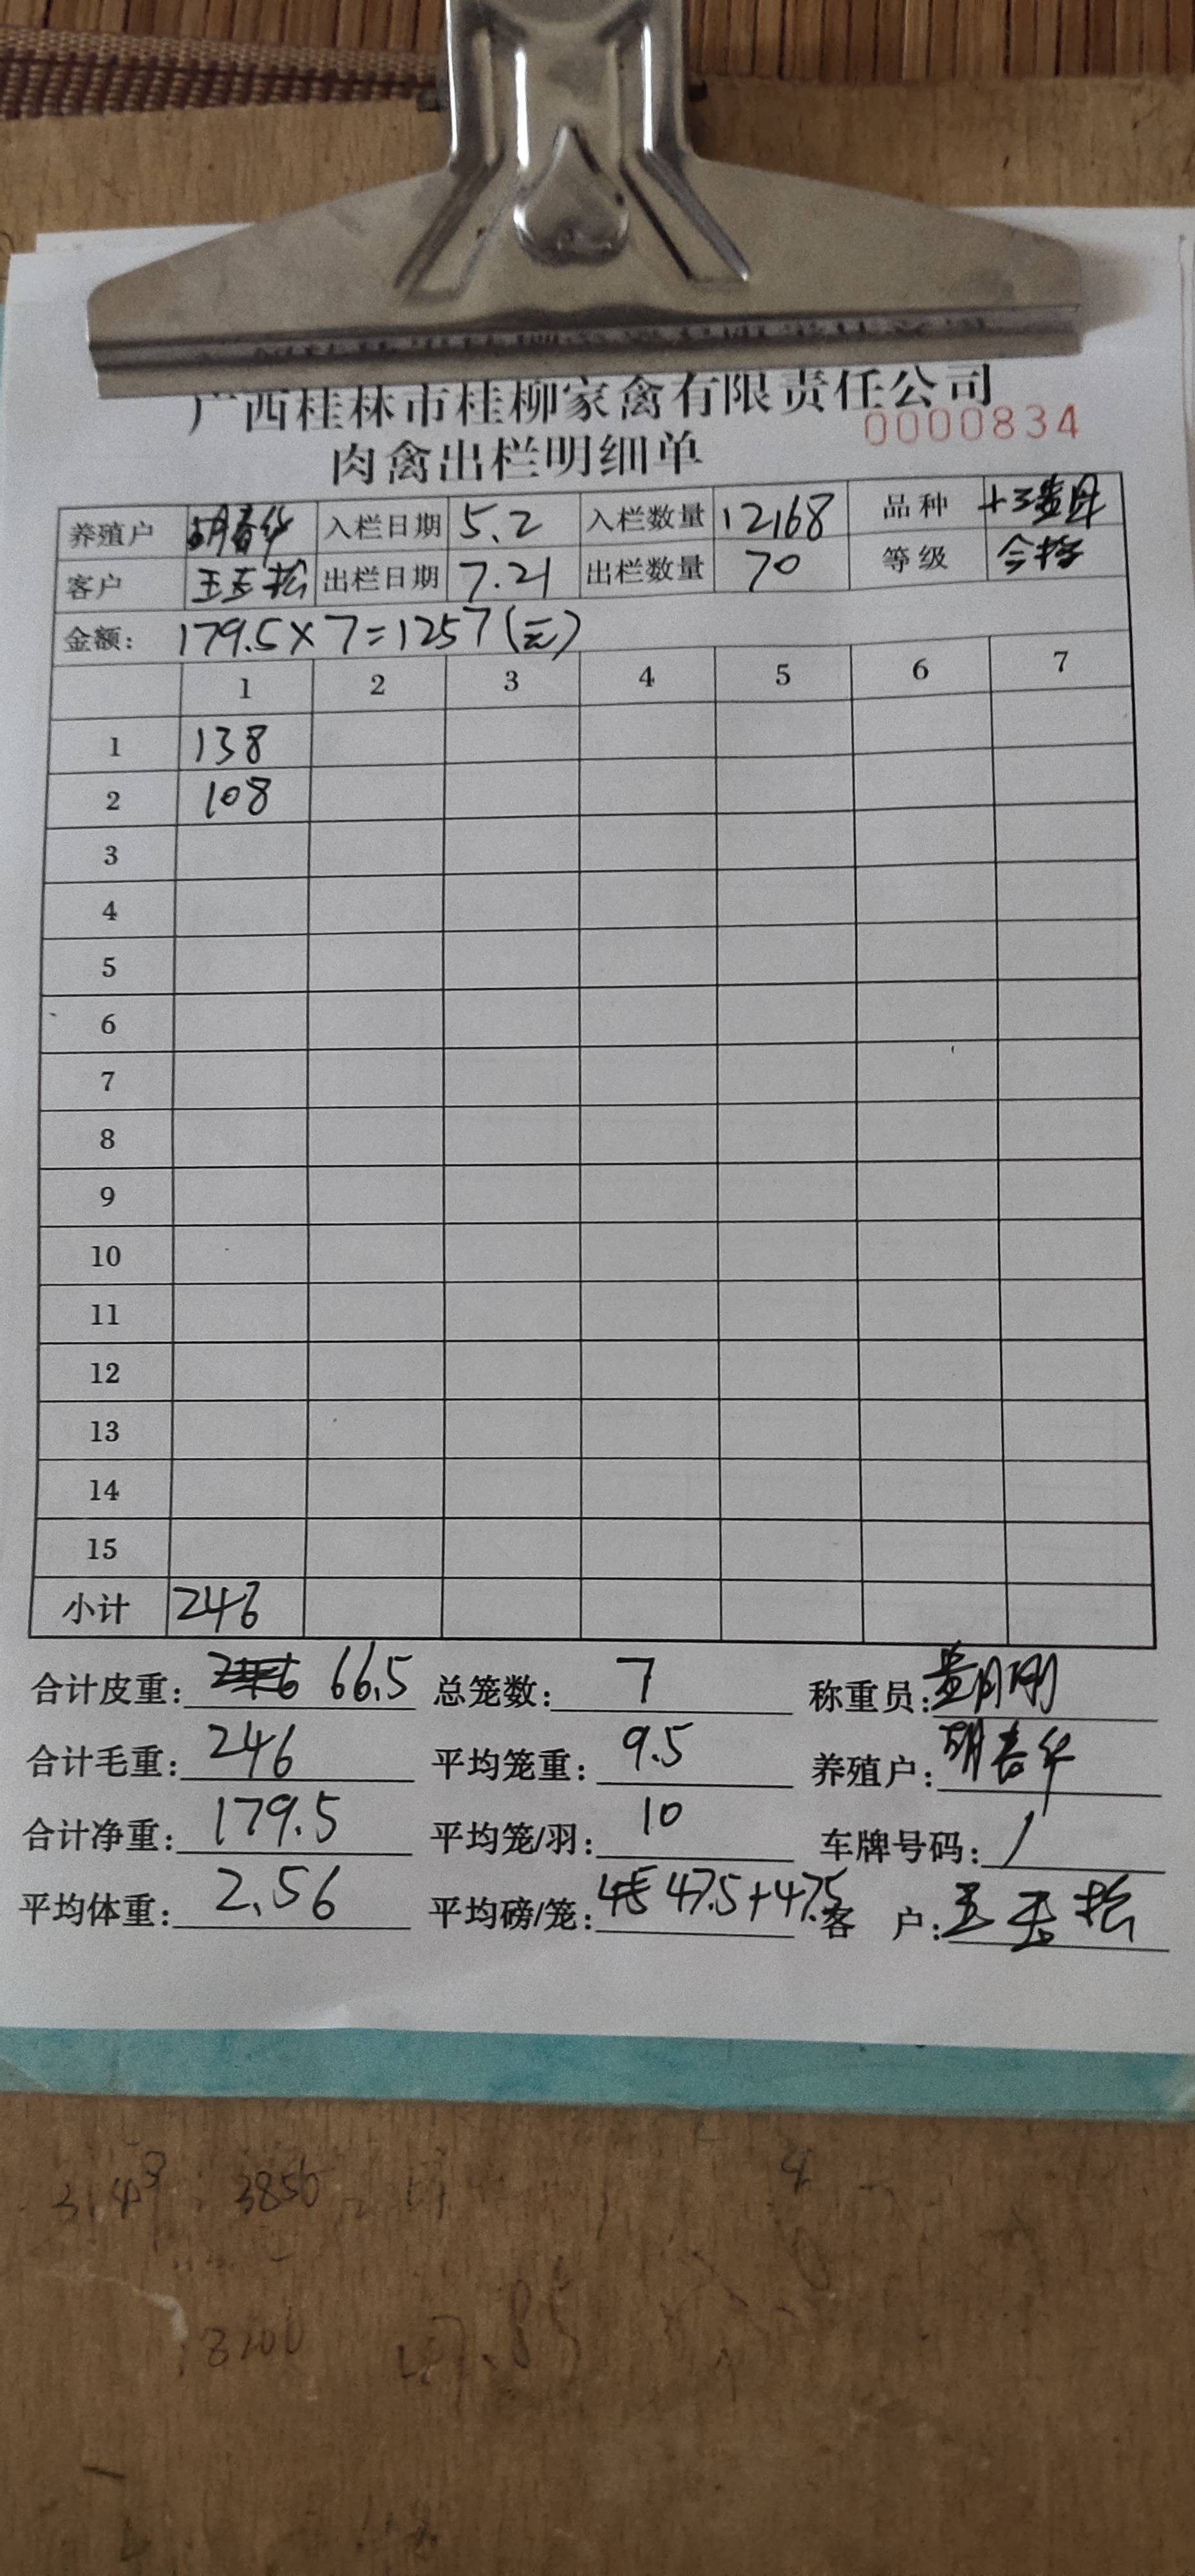 广西桂林市桂柳家禽有限责任公司
0000834
肉禽出栏明细单
养殖户 胡春华 入栏日期 5.2 入栏数量 12168 品种
客户 王玉松 出栏日期 7.21 出栏数量 70 等级 合格
金额: 179.5×7=1257(元)
1 2 3 4 5 6 7
1 138
2 108
3
4
5
6
7
8
9
10
11
12
13
14
15
小计 246
合计皮重: 66.5 总笼数: 7 称重员:
合计毛重: 246 平均笼重: 9.5 养殖户: 胡春华
合计净重: 179.5 平均笼/羽: 10 车牌号码: /
平均体重: 2.56 平均磅/笼: 47.5+47.5 客 户: 王玉松
3850